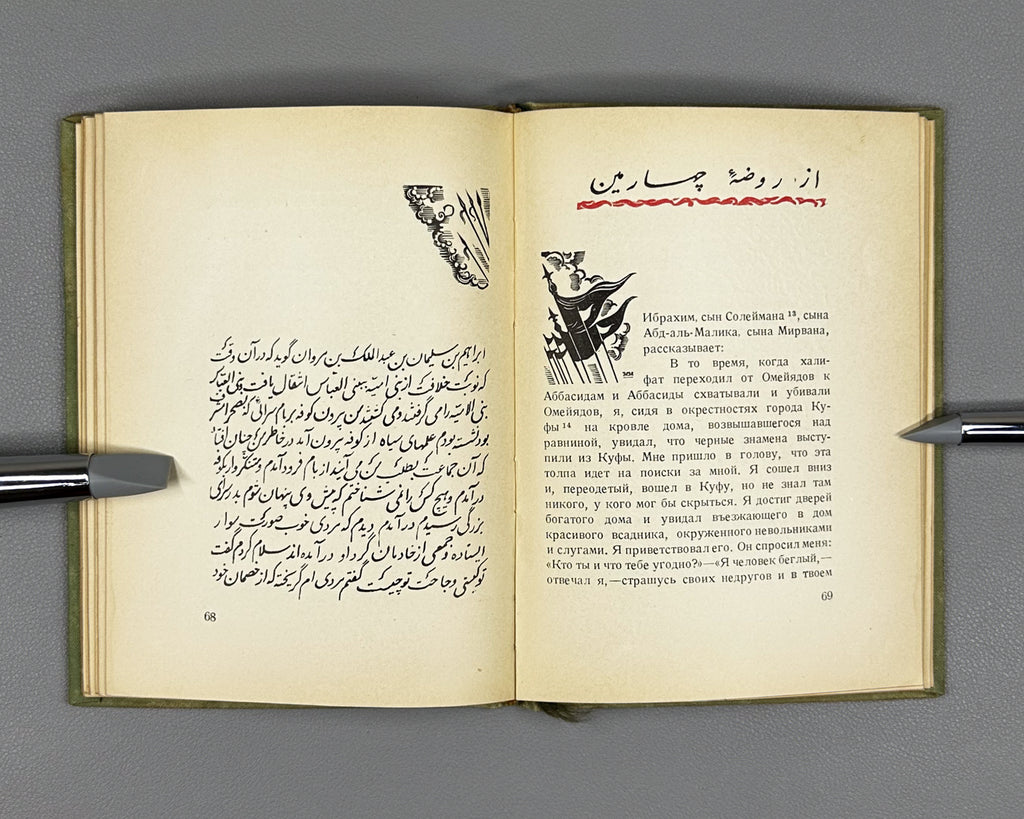 ابراهیم بن سلیمان بن عبدالملک بن مروان گوید که در آن وقت
که نوبت خلافت از بنی امیه ببنی العباس انتقال یافت و بنی العباس
بنی الامیه را می گرفتند و می کشتند من بیرون کوفه بر بام سرائی که بصحرا مشرف
بود نشسته بودم علمهای سیاه از کوفه بیرون آمد در خاطر من چنان افتاد
که آن جماعت بطلب من می آیند از بام فرود آمدم و متنکروار بکوفه
در آمدم و هیچ کس را نمی شناختم که پیش وی پنهان شوم بدر سرای
بزرگی رسیدم در آمدم دیدم که مردی خوب صورت سوار
ایستاده و جمعی از خادمان گرد او در آمده اند سلام کردم گفت
تو کیستی و حاجت تو چیست گفتم مردی ام گریخته که از خصمان خود
68
از روضهٔ چهارمین
Ибрахим, сын Солеймана 13, сына
Абд-аль-Малика, сына Мирвана,
рассказывает:
В то время, когда хали-
фат переходил от Омейядов к
Аббасидам и Аббасиды схватывали и убивали
Омейядов, я, сидя в окрестностях города Ку-
фы 14 на кровле дома, возвышавшегося над
равниной, увидал, что черные знамена высту-
пили из Куфы. Мне пришло в голову, что эта
толпа идет на поиски за мной. Я сошел вниз
и, переодетый, вошел в Куфу, но не знал там
никого, у кого мог бы скрыться. Я достиг дверей
богатого дома и увидал въезжающего в дом
красивого всадника, окруженного невольниками
и слугами. Я приветствовал его. Он спросил меня:
«Кто ты и что тебе угодно?»—«Я человек беглый,—
отвечал я,—страшусь своих недругов и в твоем
69